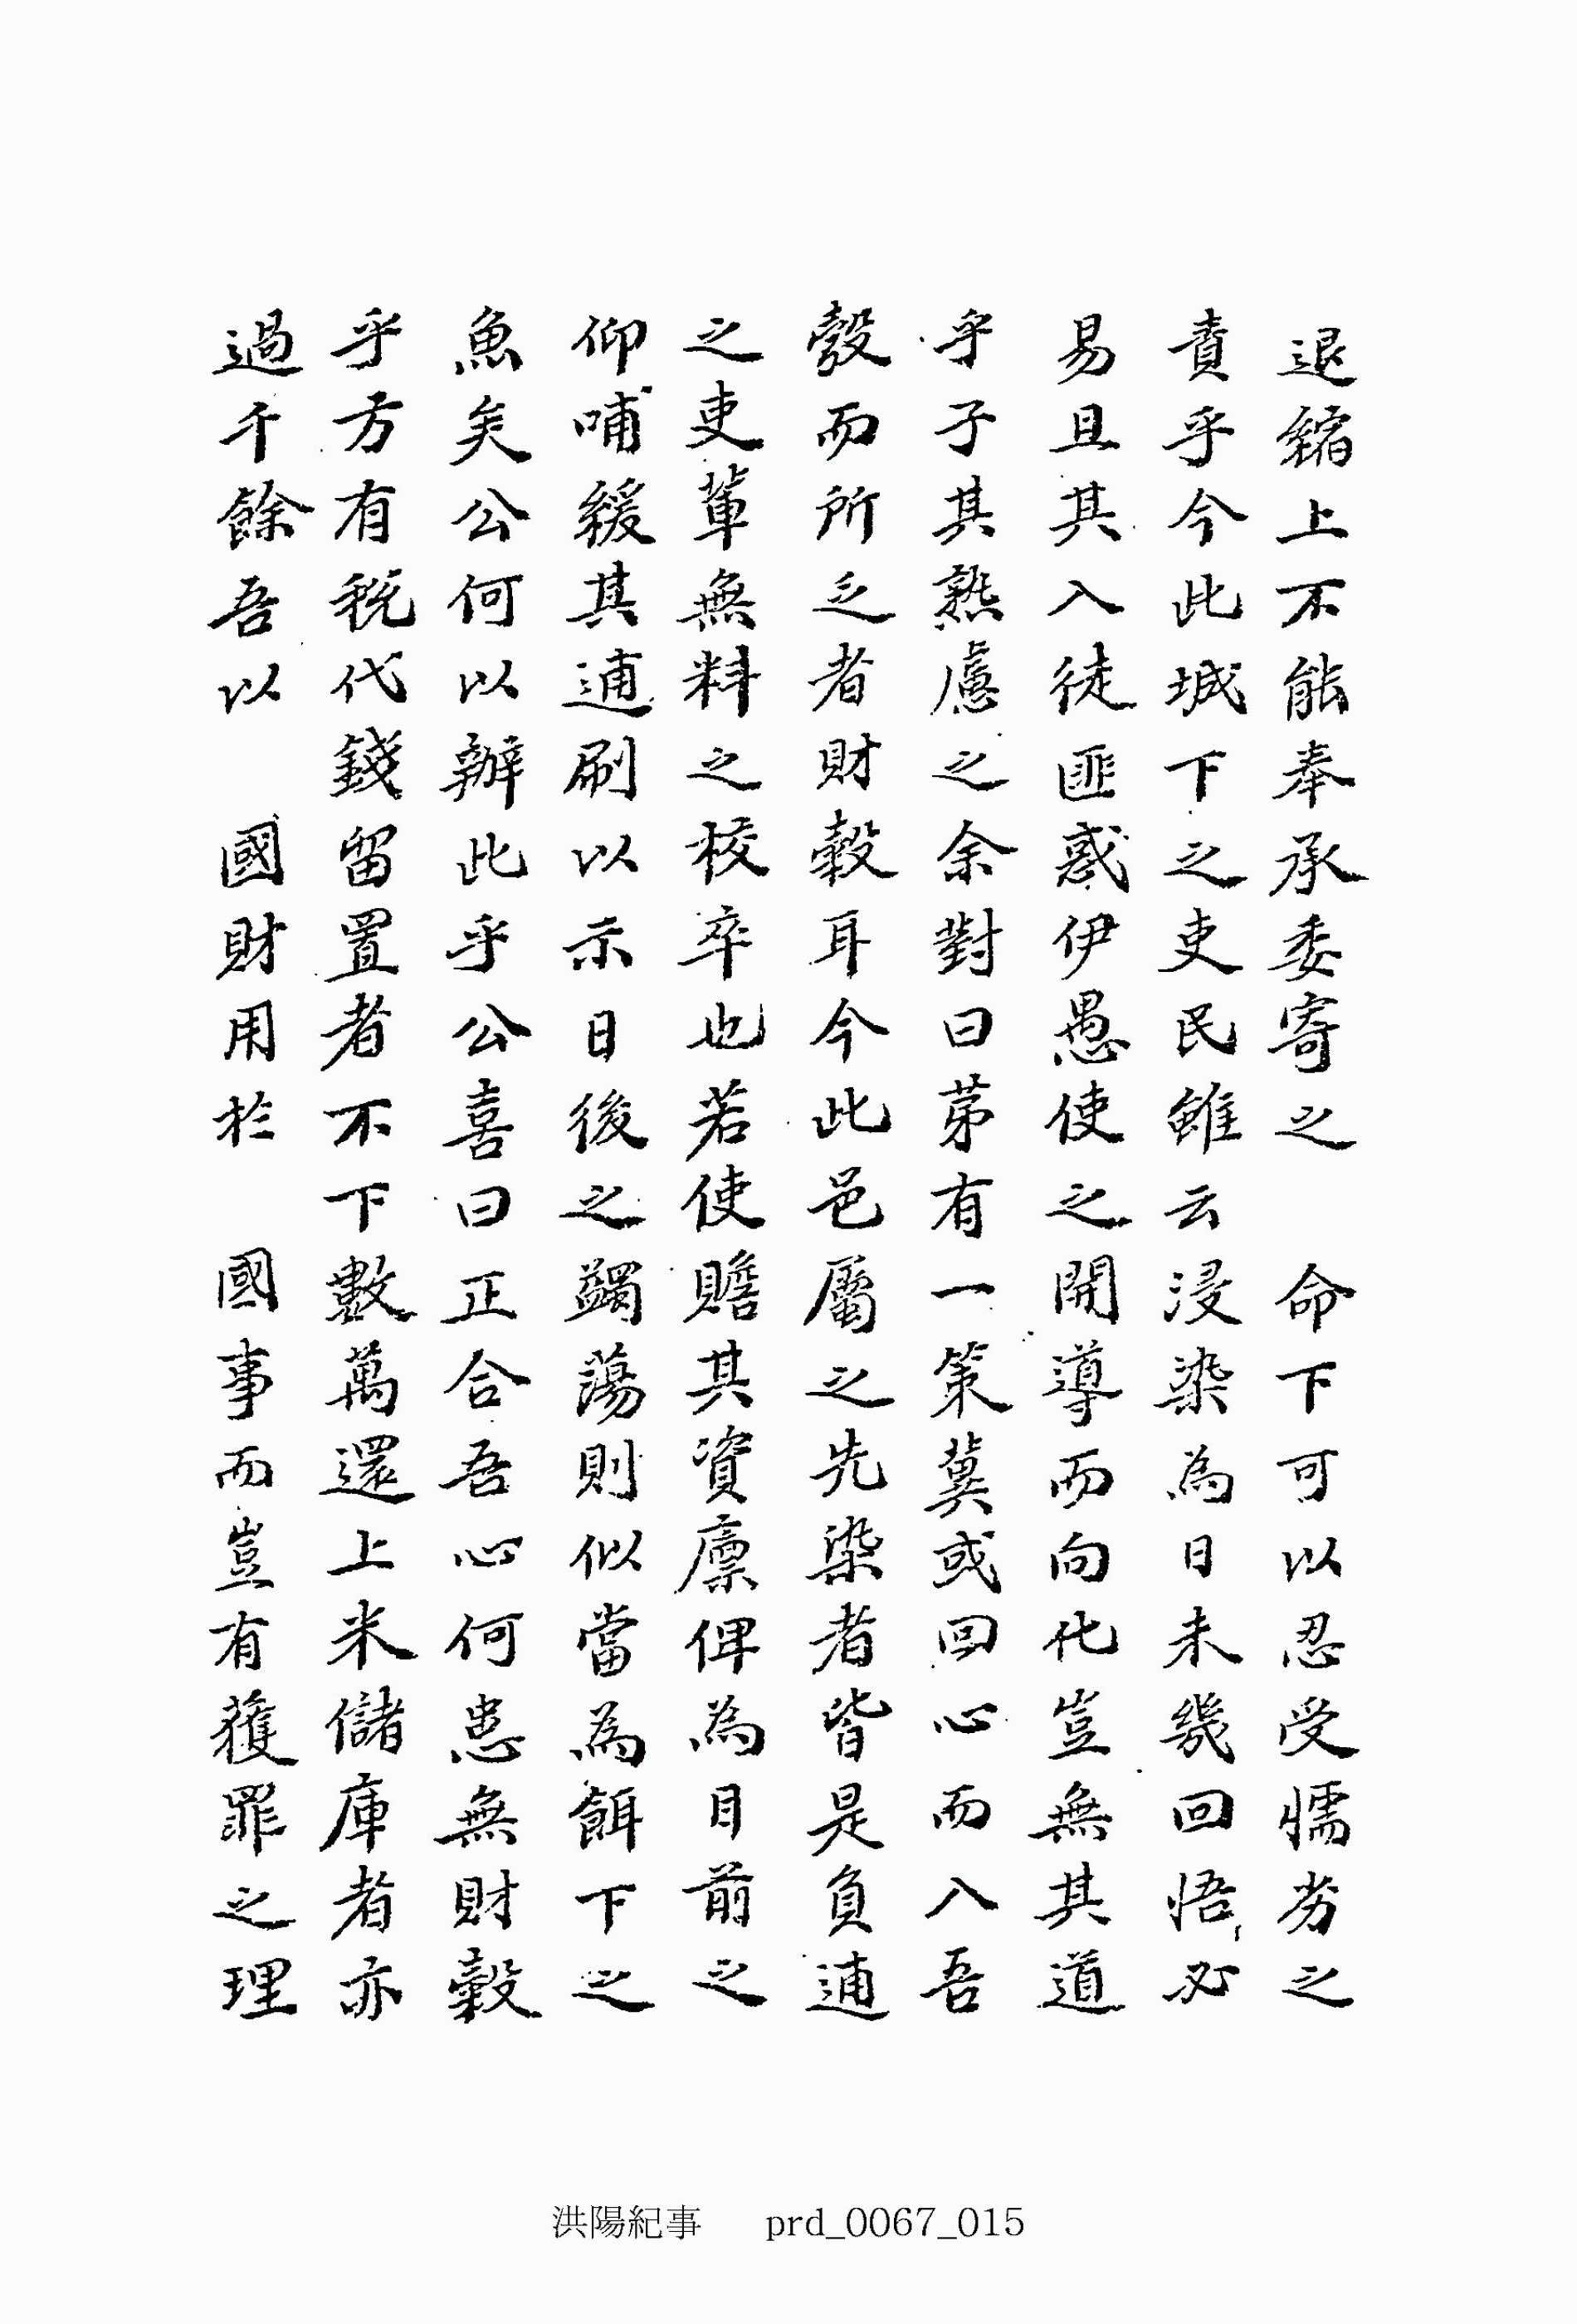 退縮上不能奉承委寄之 命下可以忍受懦劣之
責乎今此城下之吏民雖云浸染為日未幾回悟必
易且其入徒匪惑伊愚使之開導而向化豈無其道
乎子其熟慮之余對曰苐有一策冀或回心而入吾
彀而所乏者財穀耳今此邑屬之先染者皆是負逋
之吏輩無料之校卒也若使贍其資廩俾為目前之
仰哺緩其逋刷以示日後之蠲蕩則似當為餌下之
魚矣公何以辦此乎公喜曰正合吾心何患無財穀
乎方有稅代錢留置者不下數萬還上米儲庫者亦
過千餘吾以 國財用於 國事而豈有獲罪之理
洪陽紀事 prd_0067_015